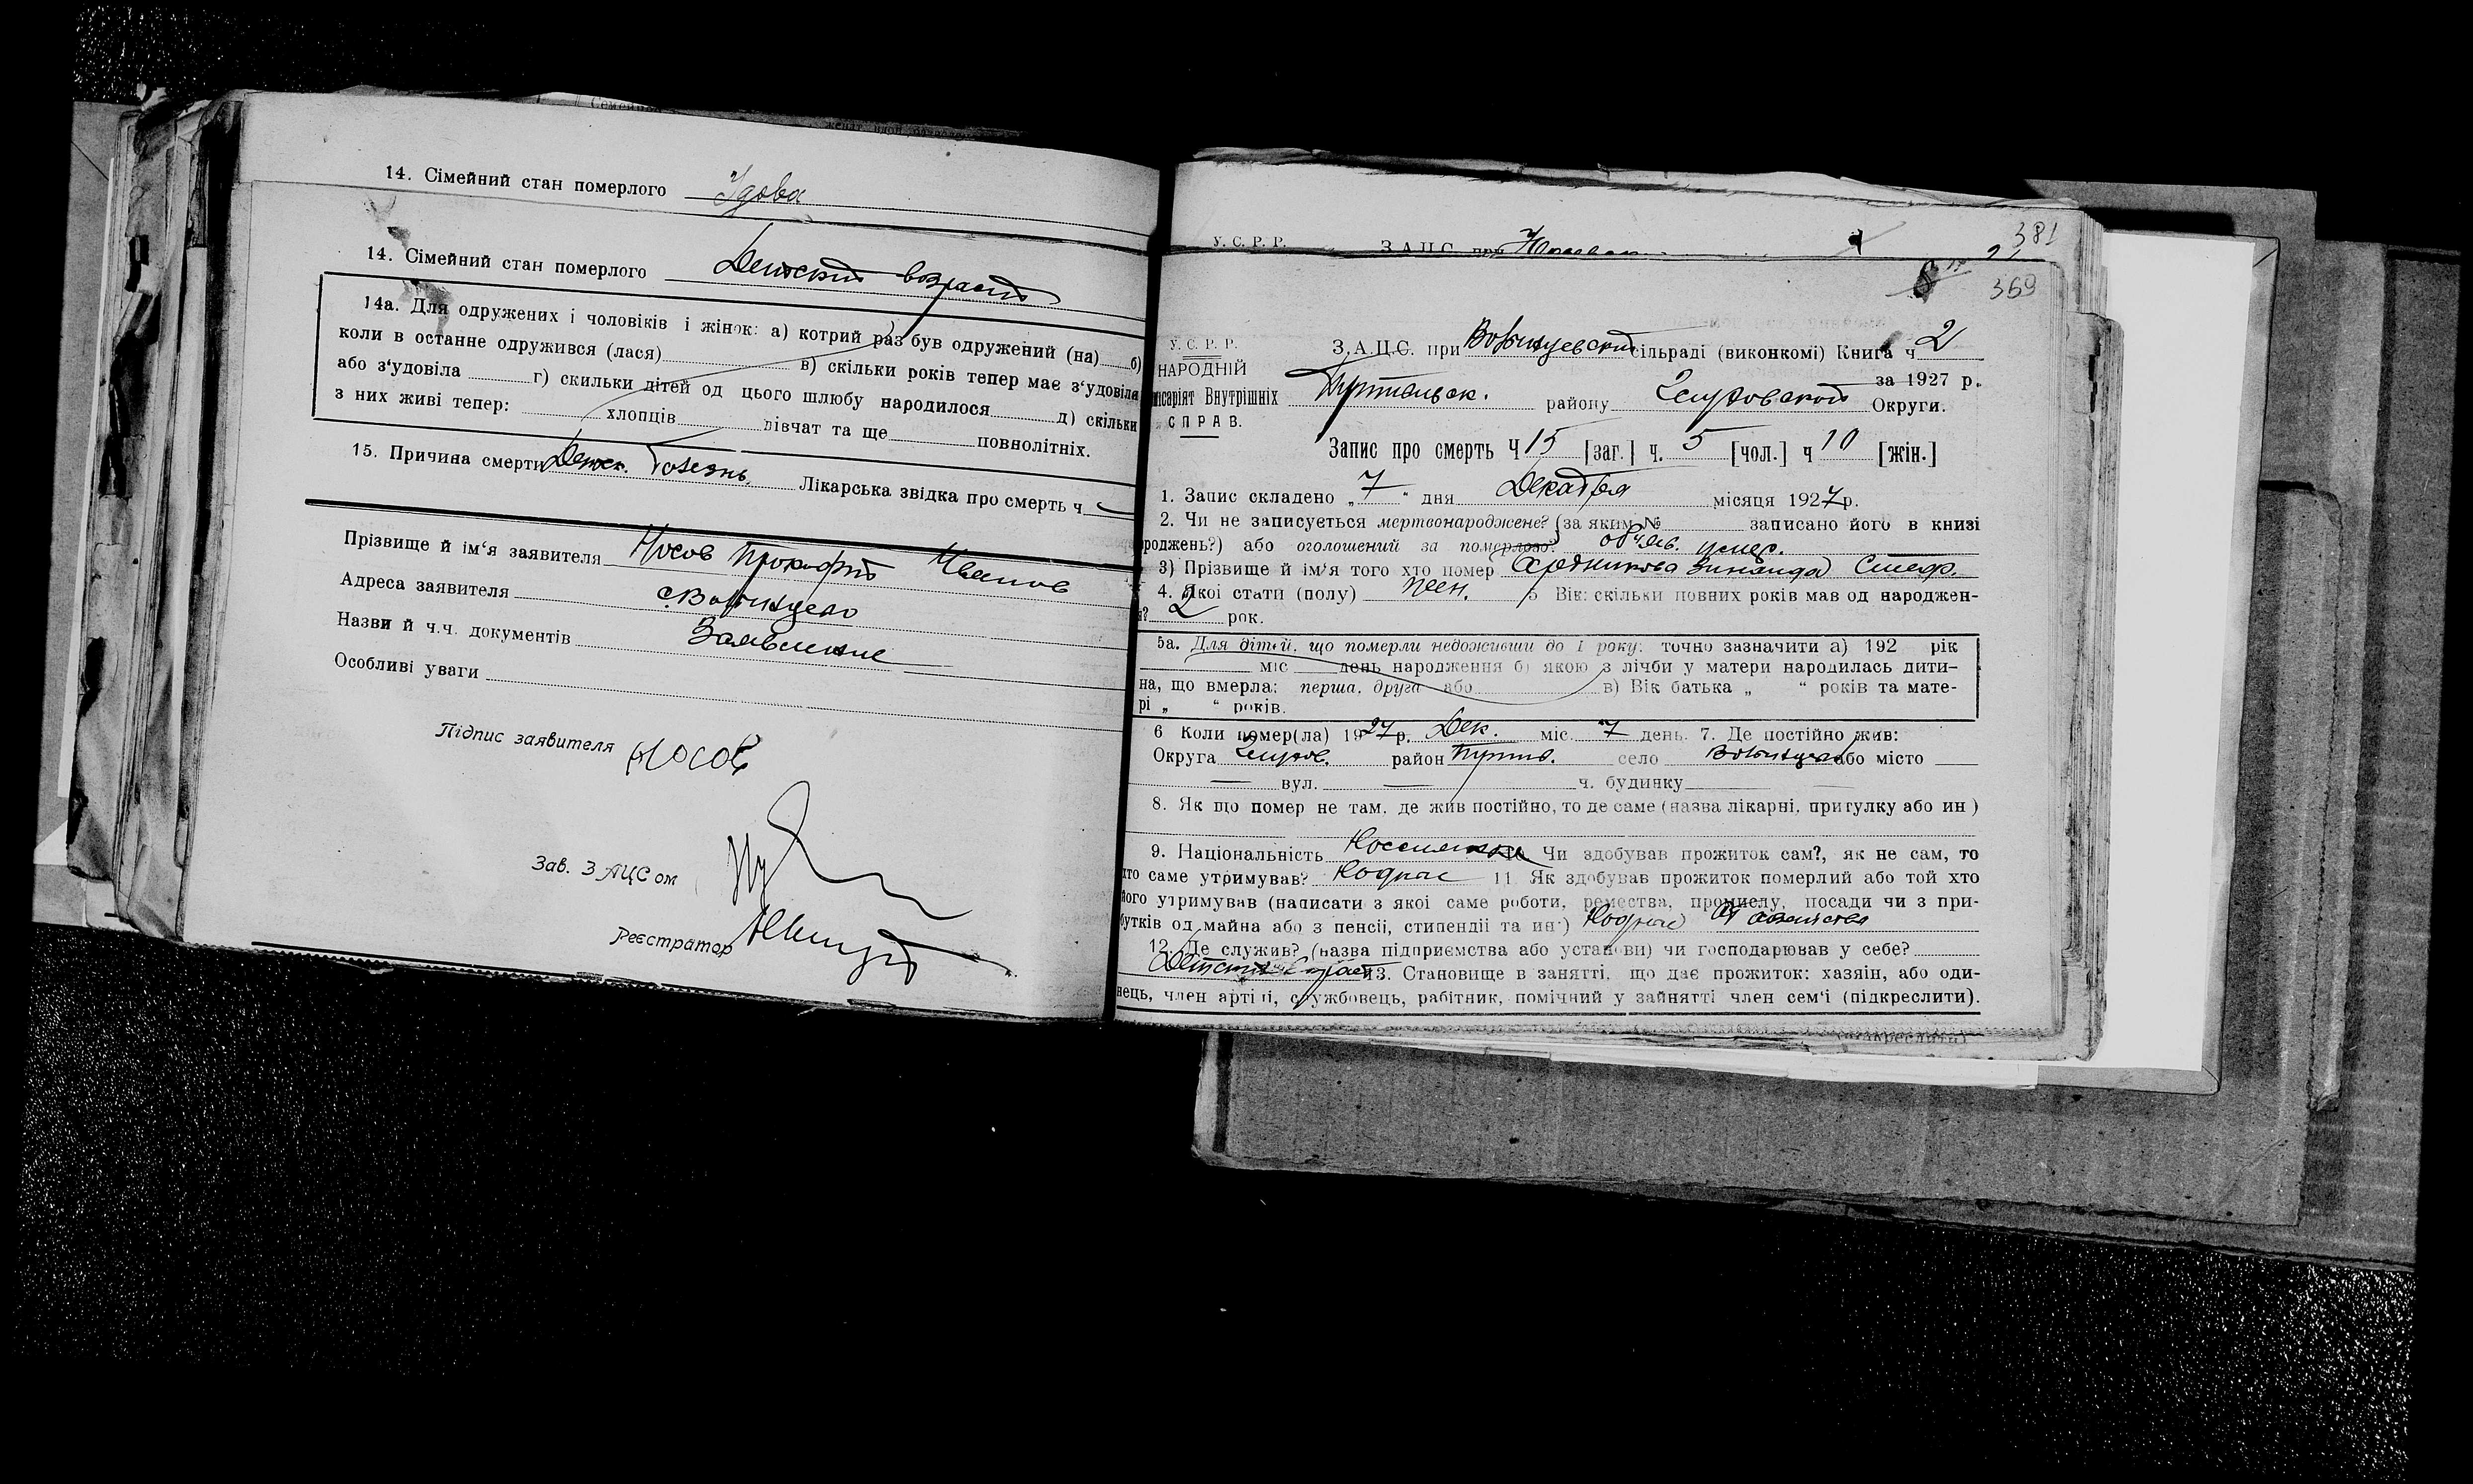 14. Сімейний стан померлого Удова
14. Сімейний стан померлого Детский возраст
14а. Для одружених і чоловіків і жінок: а) котрий раз був одружений (на) б)
коли в останне одружився (лася) в) скільки років тепер має з‘удовіла
або з‘удовіла г) скильки дітей од цього шлюбу народилося д) скільки
з них живі тепер: хлопців дівчат та ще повнолітніх.
15. Причина смерти Детск. болезнь Лікарська звідка про смерть ч
Прізвище й ім‘я заявителя Носов Прокофий Иванов
Адреса заявителя с. Волынцево
Назви й ч.ч. документів Заявление
Особливі уваги
Підпис заявителя Носов
Зав. ЗАЦСом
Реєстратор
У. С. Р. Р. З.А.Ц.С. при
381
369
У. С. Р. Р.
НАРОДНІЙ
місаріят Внутрішніх
СПРАВ.
З.А.Ц.С. при Волынцевский сільраді (виконкомі) Книга ч 2
за 1927 р.
Путивльск. району Глуховской Округи.
Запис про смерть Ч 15 [заг.] ч. 5 [чол.] ч 10 [жін.]
1. Запис складено „ 7 “ дня Декабря місяця 1927 р.
2. Чи не записується мертвонароджене? (за яким № записано його в книзі
роджень?) або оголошений за померлого? объяв. умер.
3) Прізвище й ім‘я того хто помер Зинаида Стеф.
4. Якої стати (полу) жен. 5 Вік: скільки повних років мав од народжен-
я? 2 рок.
5а. Для дітей, що померли недоживши до 1 року: точно зазначити а) 192 рік
міс день народження б) якою з лічби у матери народилась дити-
на, що вмерла: перша, друга або в) Вік батька „ “ років та мате-
рі „ “ років.
6 Коли помер(ла) 1927 р. Дек. міс. 7 день. 7. Де постійно жив:
Округа Глухов. район Путив. село Волынцево або місто
вул. ч. будинку
8. Як що помер не там, де жив постійно, то де саме (назва лікарні, притулку або ин)
9. Національність 10 Чи здобував прожиток сам?, як не сам, то
хто саме утримував? 11. Як здобував прожиток померлий або той хто
його утримував (написати з якої саме роботи, ремества, промислу, посади чи з при-
бутків од майна або з пенсії, стипендії та ин.)
12. Де служив? (назва підприємства або установи) чи господарював у себе?
Детский возраст 13. Становище в занятті, що дає прожиток: хазяїн, або оди-
нець, член артілі, службовець, рабітник, помічний у зайнятті член сем‘ї (підкреслити).
(підкреслити)